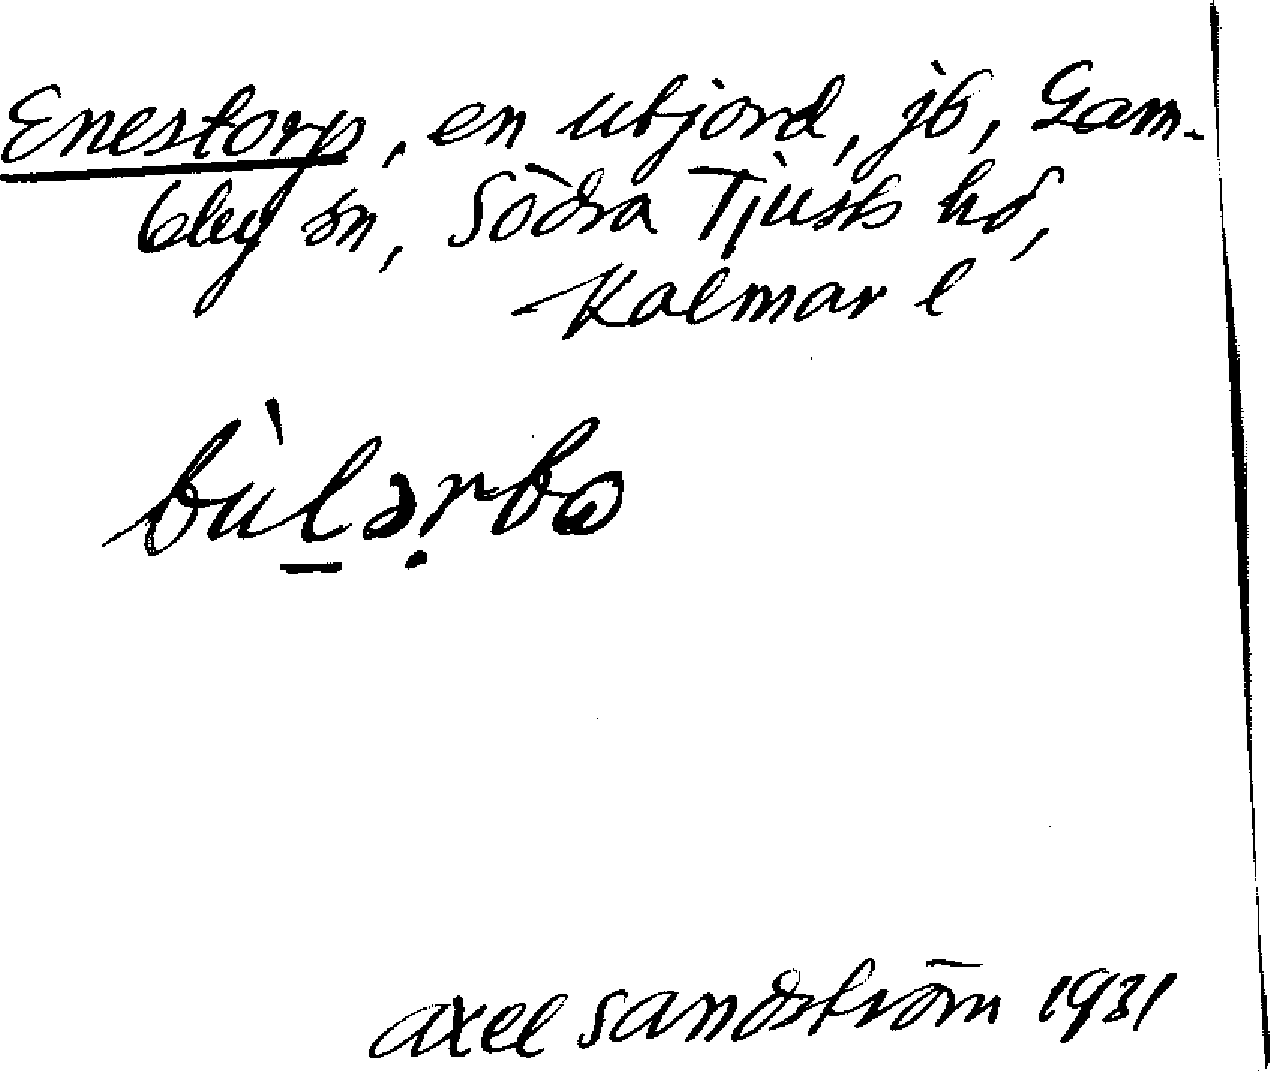 Enestorp, en utjord, jb, Gam-
bleby sn, Södra Tjusts hd,
Kalmar l
bùlərbo
Axel Sandström 1931